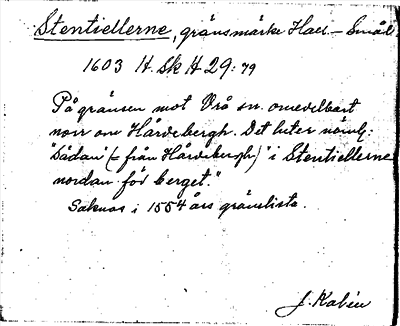 Stentiellerne, gränsmärke Hall - Smål
1603 H. Sk H 29:79
På gränsen mot Vrå sn. omedelbart
norr om Hårdebergh. Det heter näml.:
"Sädan (= från Hårdebergh) i Stentiellerne
nordan för berget."
Saknas i 1554 års gränslista.
J. Kalén